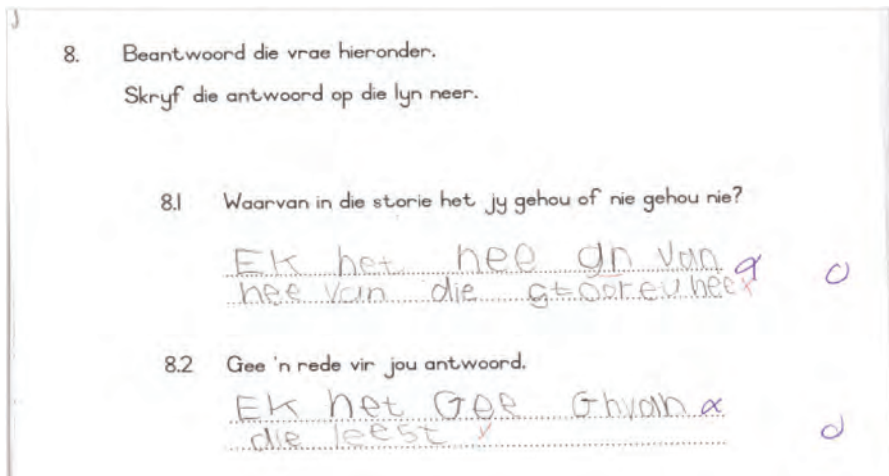 8. Beantwoord die vrae hieronder.
Skryf die antwoord op die lyn neer.
8.1 Waarvan in die storie het jy gehou of nie gehou nie?
EK het hee gn van
hee van die
8.2 Gee 'n rede vir jou antwoord.
EK het Gee Ghvan
die leest